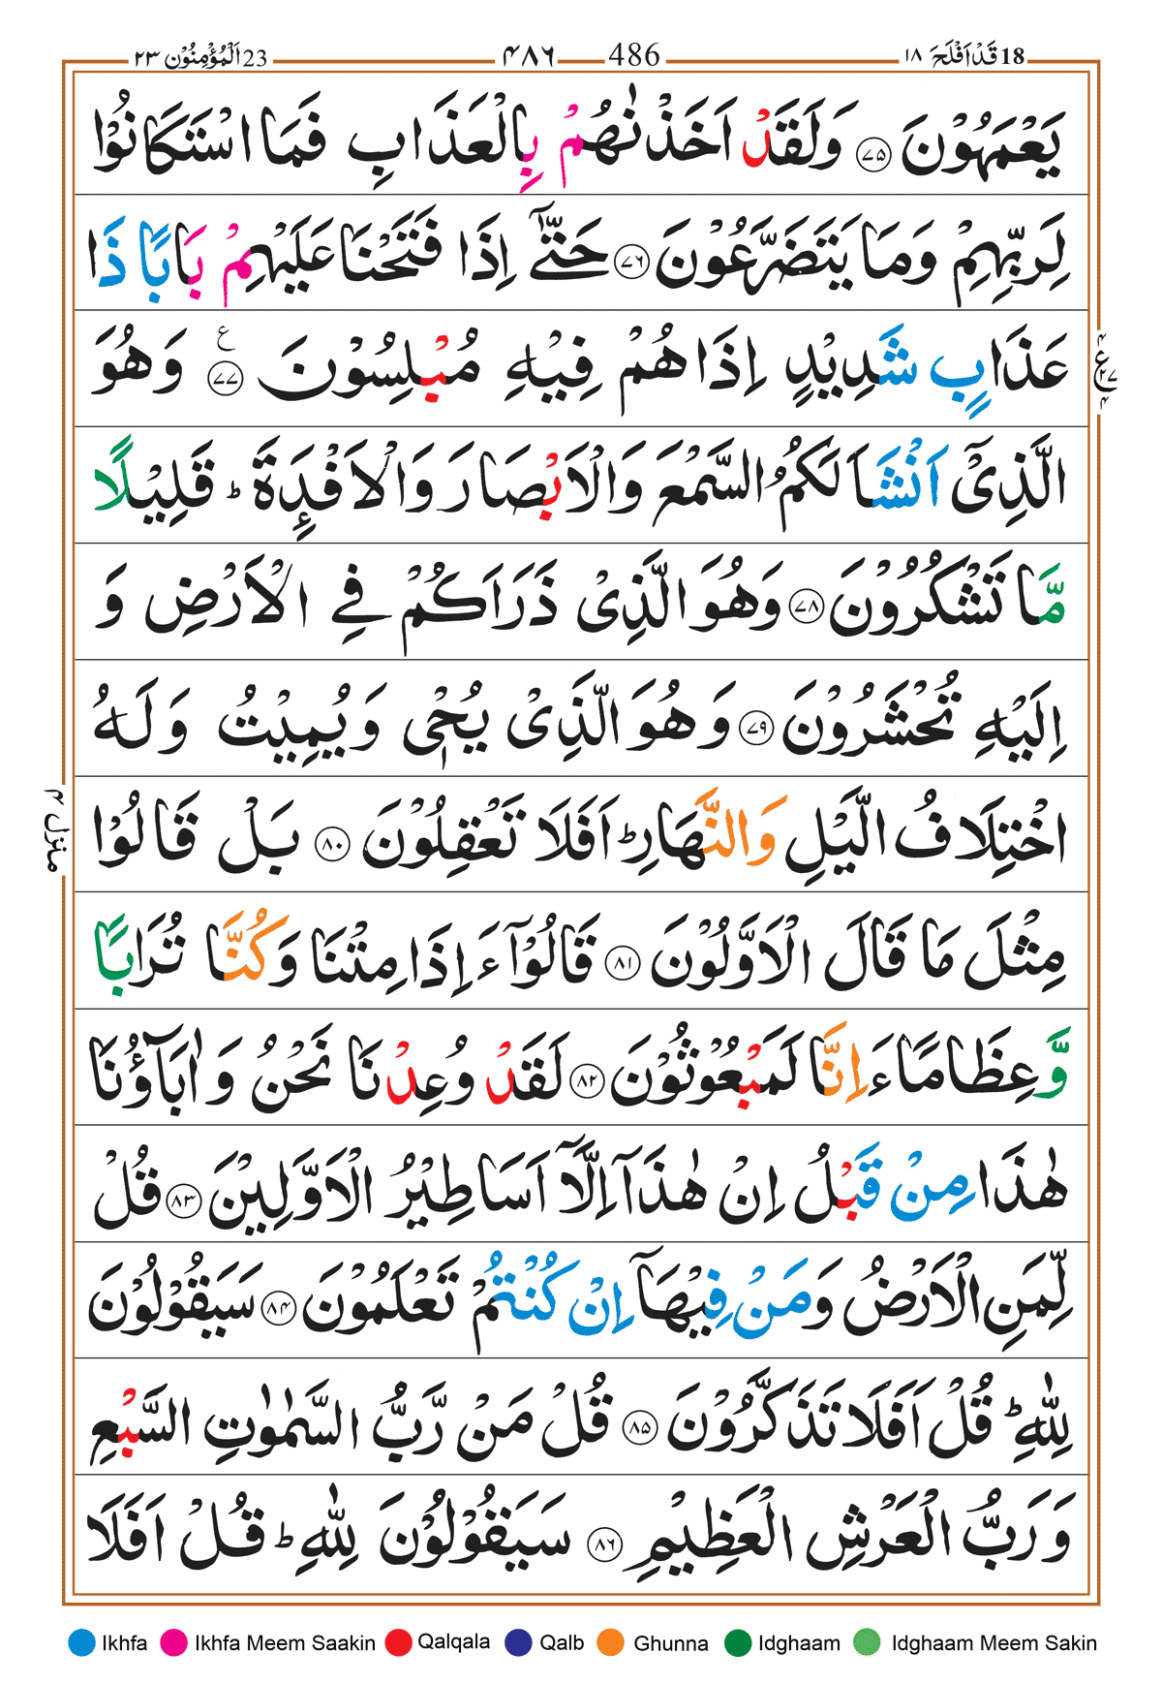 23 اَلْمُؤْمِنُوْن ٢٣ ٤٨٦ 486 18 قَدْ اَفْلَحَ ١٨
يَعْمَهُوْنَ ﴿٧٥﴾ وَلَقَدْ اَخَذْنٰهُمْ بِالْعَذَابِ فَمَا اسْتَكَانُوْا
لِرَبِّهِمْ وَمَا يَتَضَرَّعُوْنَ ﴿٧٦﴾ حَتّٰۤى اِذَا فَتَحْنَا عَلَيْهِمْ بَابًا ذَا
عَذَابٍ شَدِيْدٍ اِذَا هُمْ فِيْهِ مُبْلِسُوْنَ ﴿٧٧﴾ ع وَهُوَ
الَّذِىْۤ اَنْشَاَ لَكُمُ السَّمْعَ وَالْاَبْصَارَ وَالْاَفْـِٕدَةَ ؕ قَلِيْلًا
مَّا تَشْكُرُوْنَ ﴿٧٨﴾ وَهُوَ الَّذِىْ ذَرَاَكُمْ فِى الْاَرْضِ وَ
اِلَيْهِ تُحْشَرُوْنَ ﴿٧٩﴾ وَهُوَ الَّذِىْ يُحْىٖ وَيُمِيْتُ وَلَهُ
اخْتِلَافُ الَّيْلِ وَالنَّهَارِ ؕ اَفَلَا تَعْقِلُوْنَ ﴿٨٠﴾ بَلْ قَالُوْا
مِثْلَ مَا قَالَ الْاَوَّلُوْنَ ﴿٨١﴾ قَالُوْۤا ءَاِذَا مِتْنَا وَكُنَّا تُرَابًا
وَّعِظَامًا ءَاِنَّا لَمَبْعُوْثُوْنَ ﴿٨٢﴾ لَقَدْ وُعِدْنَا نَحْنُ وَاٰبَآؤُنَا
هٰذَا مِنْ قَبْلُ اِنْ هٰذَاۤ اِلَّاۤ اَسَاطِيْرُ الْاَوَّلِيْنَ ﴿٨٣﴾ قُلْ
لِّمَنِ الْاَرْضُ وَمَنْ فِيْهَاۤ اِنْ كُنْتُمْ تَعْلَمُوْنَ ﴿٨٤﴾ سَيَقُوْلُوْنَ
لِلّٰهِ ؕ قُلْ اَفَلَا تَذَكَّرُوْنَ ﴿٨٥﴾ قُلْ مَنْ رَّبُّ السَّمٰوٰتِ السَّبْعِ
وَرَبُّ الْعَرْشِ الْعَظِيْمِ ﴿٨٦﴾ سَيَقُوْلُوْنَ لِلّٰهِ ؕ قُلْ اَفَلَا
منزل ٤
Ikhfa Ikhfa Meem Saakin Qalqala Qalb Ghunna Idghaam Idghaam Meem Sakin